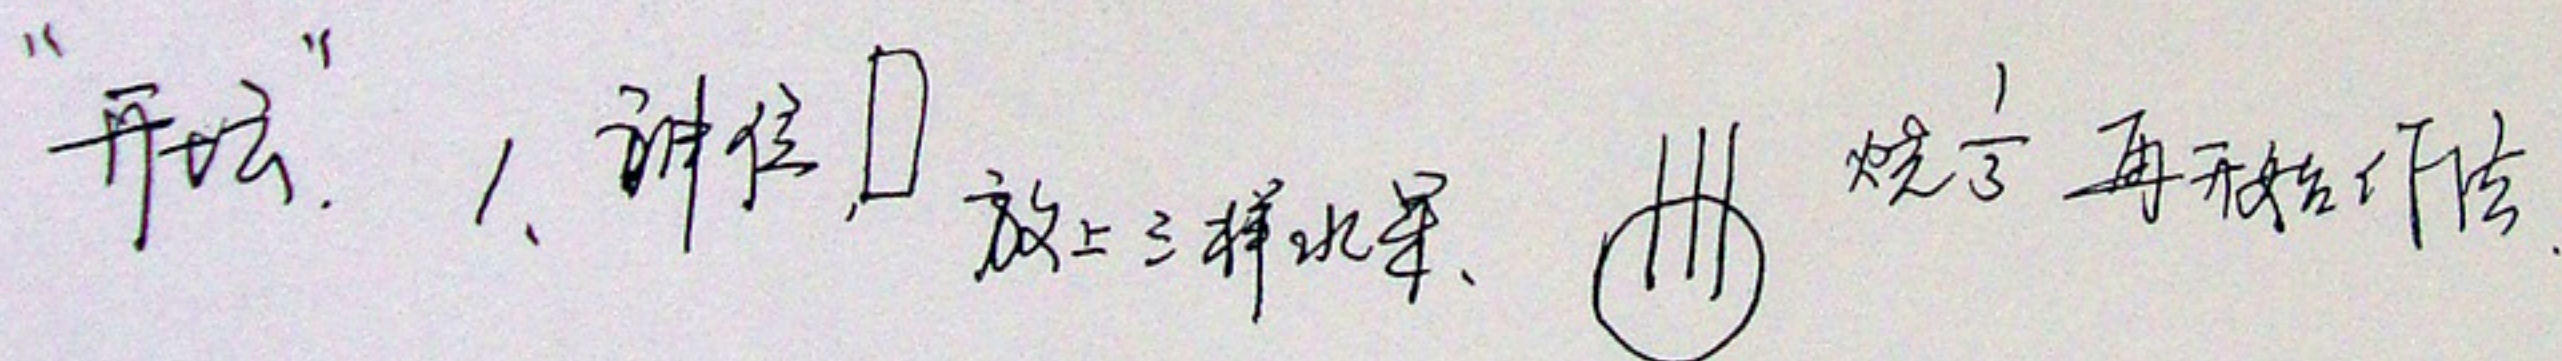 "开坛". 1、神位, 放上三样水果、 烧1/3 再开始作法.